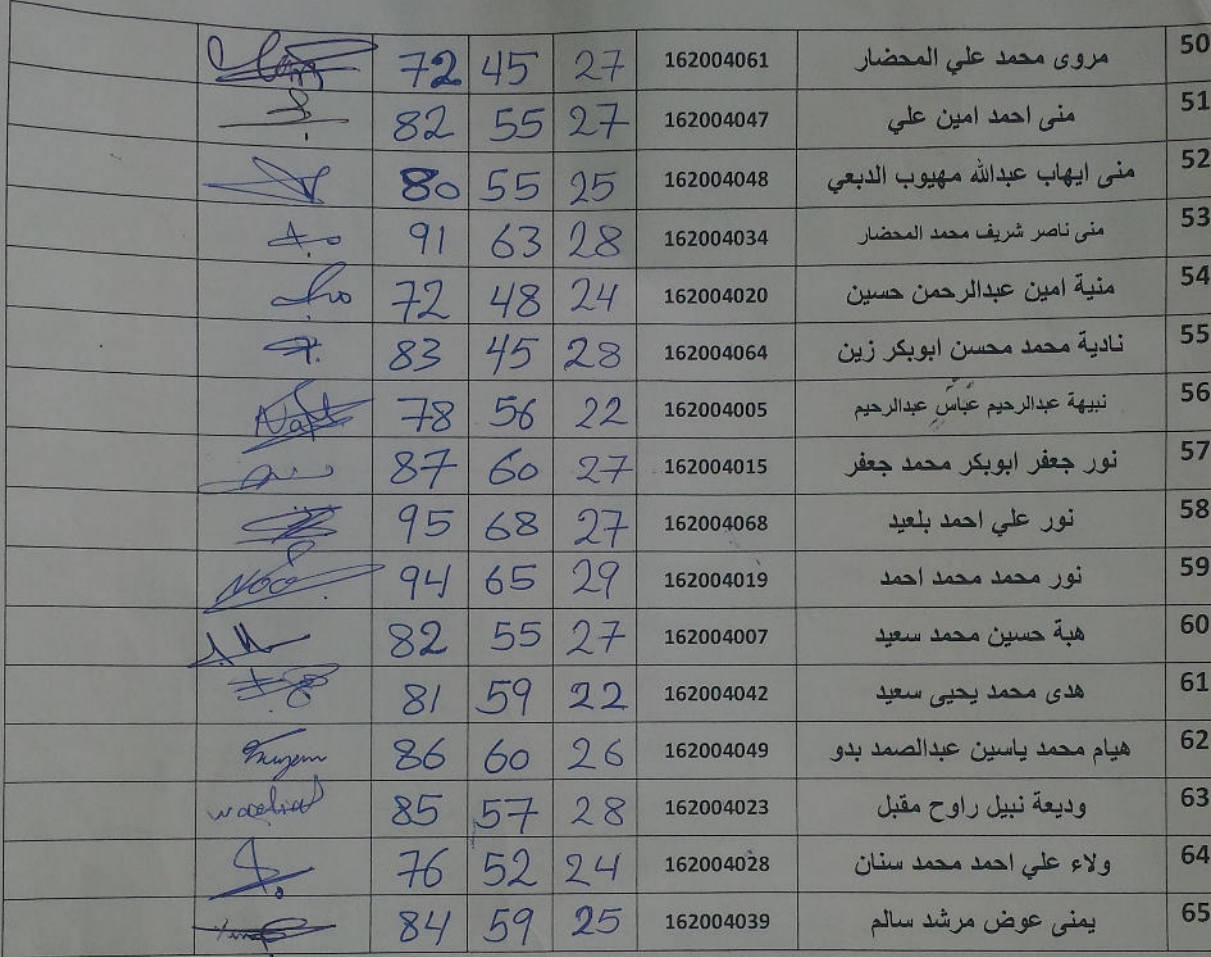 50 مروى محمد علي المحضار 162004061 27 45 72
51 منى احمد امين علي 162004047 27 55 82
52 منى ايهاب عبدالله مهيوب الدبعي 162004048 25 55 80
53 منى ناصر شريف محمد المحضار 162004034 28 63 91
54 منية امين عبدالرحمن حسين 162004020 24 48 72
55 نادية محمد محسن ابوبكر زين 162004064 28 45 83
56 نبيهة عبدالرحيم عباس عبدالرحيم 162004005 22 56 78
57 نور جعفر ابوبكر محمد جعفر 162004015 27 60 87
58 نور علي احمد بلعيد 162004068 27 68 95
59 نور محمد محمد احمد 162004019 29 65 94
60 هبة حسين محمد سعيد 162004007 27 55 82
61 هدى محمد يحيى سعيد 162004042 22 59 81
62 هيام محمد ياسين عبدالصمد بدو 162004049 26 60 86
63 وديعة نبيل راوح مقبل 162004023 28 57 85
64 ولاء علي احمد محمد سنان 162004028 24 52 76
65 يمنى عوض مرشد سالم 162004039 25 59 84